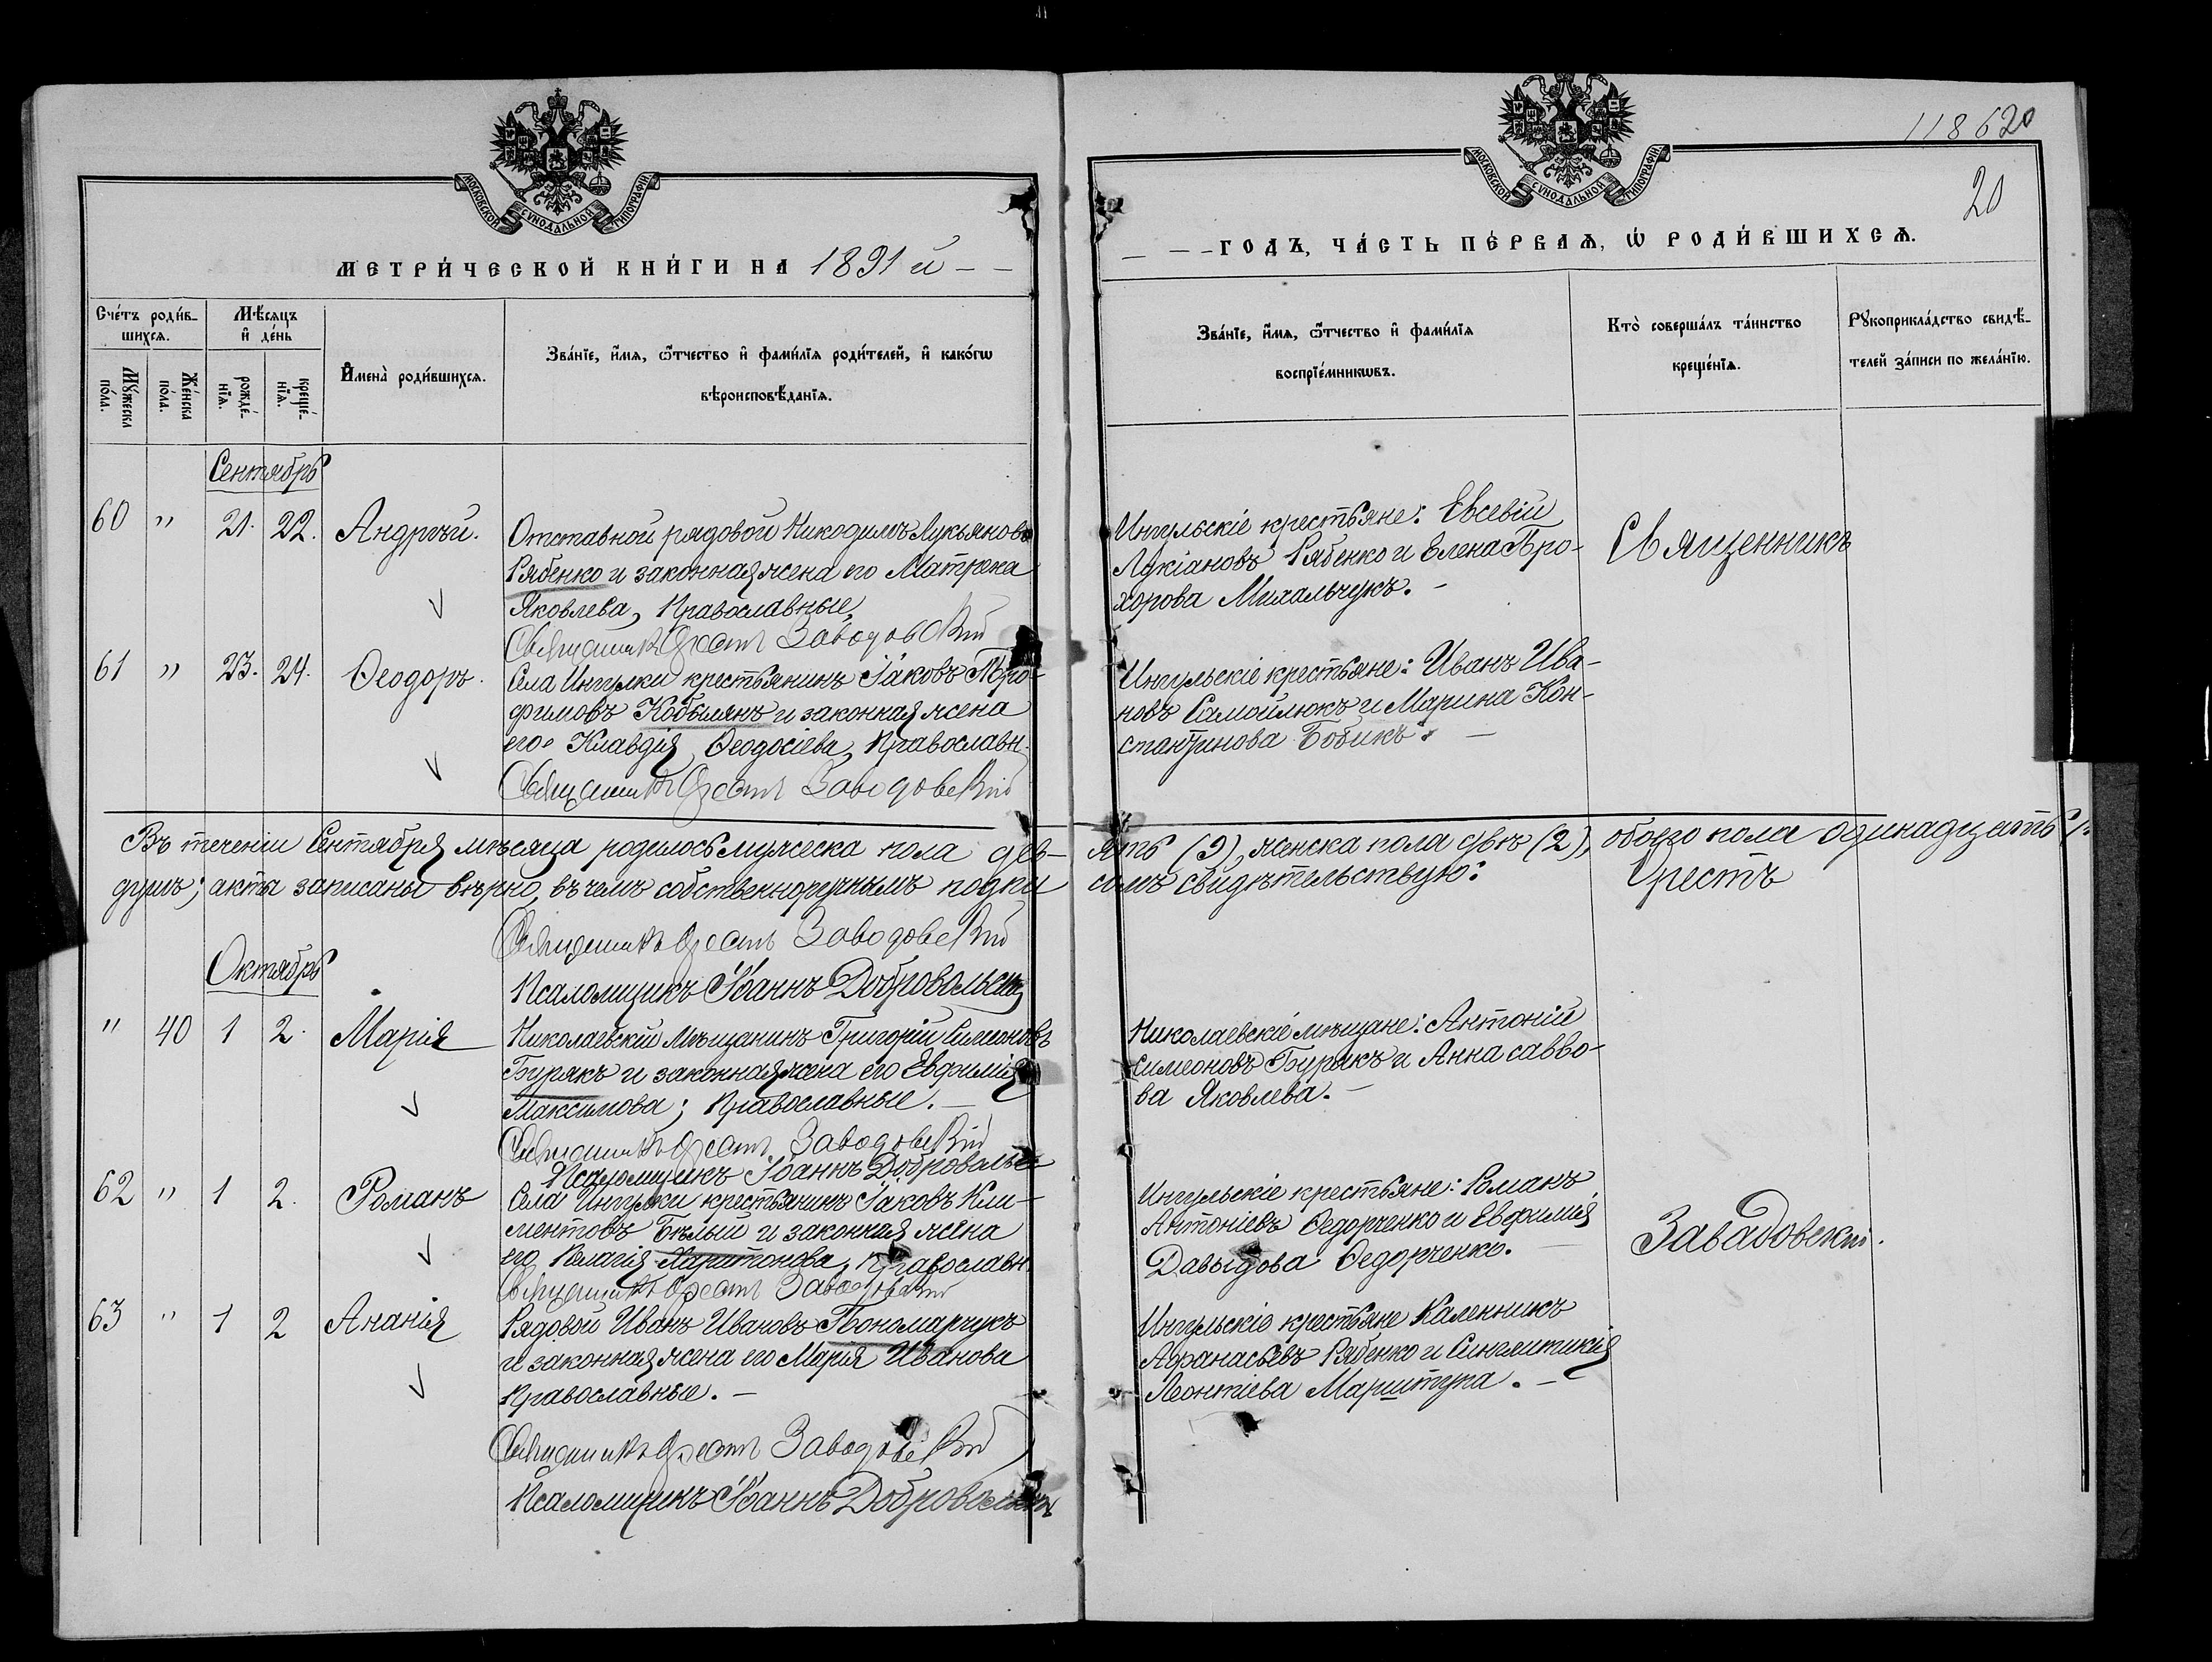 118620
20
МОСКОВСКОЙ СѴНОДАЛЬНОЙ ТИПОГРАФІИ
МОСКОВСКОЙ СѴНОДАЛЬНОЙ ТИПОГРАФІИ
МЕТРИ́ЧЕСКОЙ КНИ́ГИ НА 1891 й - -
- - - ГОДЪ, ЧА́СТЬ ПЕ́РВАѦ, Ѡ҆ РОДИ́ВШИХСѦ.
Сче́тъ роди́в-
шихсѧ.
Мꙋ́жеска
по́ла.
Же́нска
по́ла.
Мѣ́сѧцъ
и҆ де́нь
рожде́-
нїѧ.
креще́-
нїѧ.
И҆мена̀ роди́вшихсѧ.
Зва́нїе, и҆́мѧ, ѻ҆́тчество и҆ фами́лїѧ роди́телей, и҆ како́гѡ
вѣроисповѣ́данїѧ.
Зва́нїе, и҆́мѧ, ѻ҆́тчество и҆ фами́лїѧ
воспрїе́мникѡвъ.
Кто̀ соверша́лъ та́инство
креще́нїѧ.
Рꙋкоприкла́дство свидѣ́-
телей за́писи по жела́нїю.
Сентябрь
60 " 21. 22. Андрѣй.
Отставной рядовой Никодимъ Лукьяновъ
Рябенко и законная жена его Матрона
Яковлева, Православные,
Священникъ Орестъ Заводовскій
Ингульскіе крестьяне: Евсевій
Лукіановъ Рябенко и Елена Про-
хорова Михальчукъ. -
Священникъ
61 " 23. 24. Ѳеодоръ.
Села Ингулки крестьянинъ Іаковъ Тро-
фимовъ Кобылянъ и законная жена
его Клавдія Ѳеодосіева, Православн.
Священникъ Орестъ Заводовскій
Ингульскіе крестьяне: Иванъ Ива-
новъ Самойлюкъ и Марина Кон-
стантинова Бобикъ. -
Въ теченіи Сентября мѣсяца родилось мужеска пола дев- ять (9), женска пола двѣ (2), обоего пола одинадцать
душъ; акты записаны вѣрно, въ чемъ собственноручнымъ подпи сомъ свидѣтельствую: Орестъ
Священникъ Орестъ Заводовскій
Псаломщикъ Іоаннъ Добровольскій
Октябрь
" 40 1 2. Марія
Николаевскій мѣщанинъ Григорій Симеоновъ
Бурякъ и законная жена его Евфимія
Максимова; Православные. -
Священникъ Орестъ Заводовскій
Псаломщикъ Іоаннъ Добровольс
Николаевскіе мѣщане: Антоній
Симеоновъ Бурякъ и Анна Савво-
ва Яковлева. -
62 " 1 2. Романъ
Села Ингулки крестьянинъ Іаковъ Кли-
ментовъ Бѣлый и законная жена
его Пелагія Харитонова, Православн.
Священникъ Орестъ Заводовскій
Ингульскіе крестьяне: Романъ
Антоніевъ Ѳедорченко и Евфимія
Давыдова Ѳедорченко. -
Завадовскій.
63 " 1 2 Ананія
Рядовой Иванъ Ивановъ Пономарчукъ
и законная жена его Марія Иванова
Православные. -
Священникъ Орестъ Заводовскій
Псаломщикъ Іоаннъ Добровольскій
Ингульскіе крестьяне Каленникъ
Афанасьевъ Рябенко и Синглитикія
Леонтіева Марштупа. -